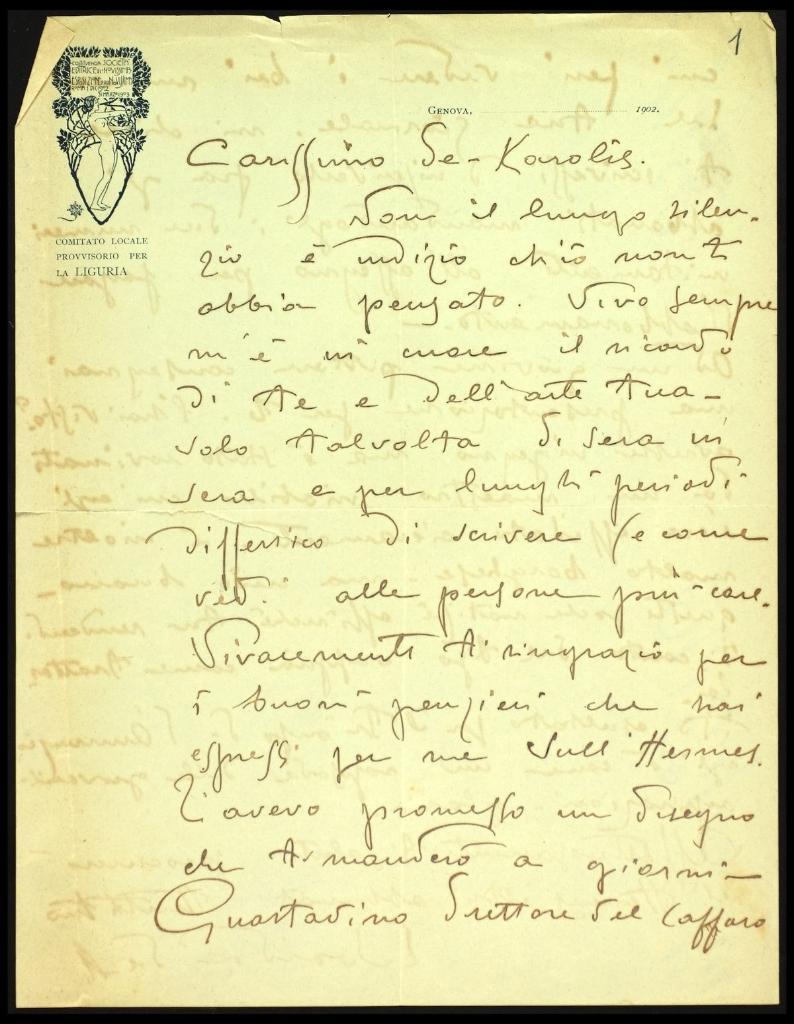 1
SOCIETÀ
EDITRICE DI NOVISSIMA
GENOVA, 1902.
COMITATO LOCALE
PROVVISORIO PER
LA LIGURIA
Carissimo De-Karolis.
Non il lungo silen-
zio è indizio ch'io non ti
abbia pensato. Vivo sempre
m'è in cuore il ricordo
di te e dell'arte tua –
solo talvolta di sera in
sera e per lunghi periodi
differisco di scrivere (e come
vedi alle persone più care.
Vivacemente ti ringrazio per
i buoni pensieri che hai
espressi per me sull'Hermes.
T'avevo promesso un disegno
che ti manderò a giorni –
Guastavino Direttore del Caffaro